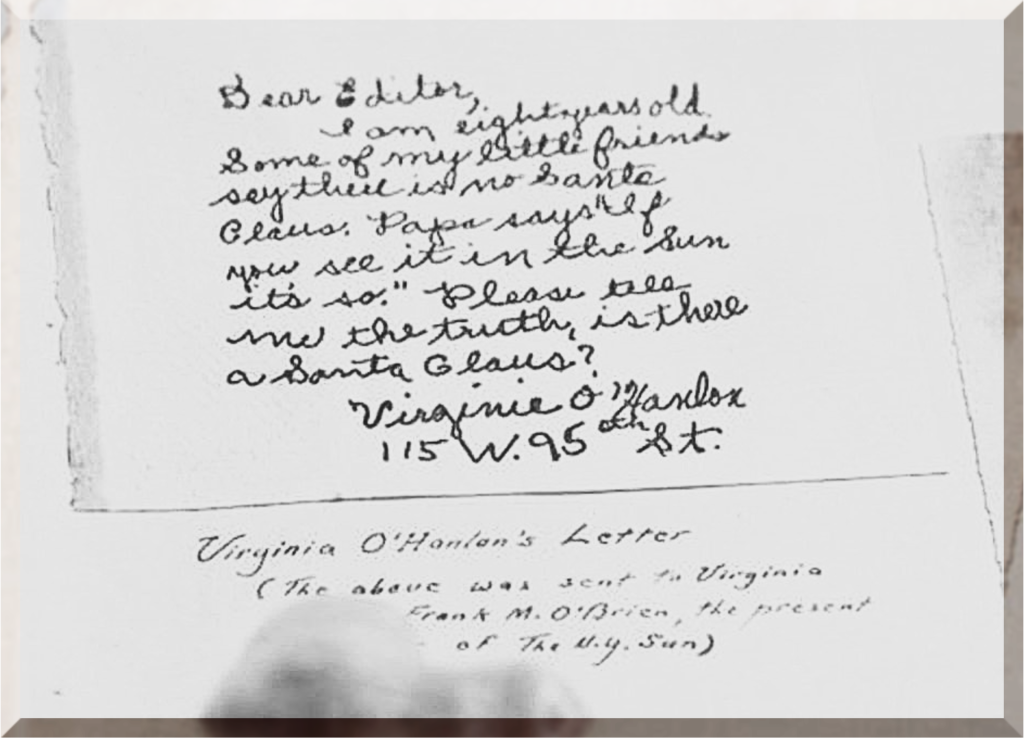 Dear Editor,
I am eight years old.
Some of my little friends
say there is no Santa
Claus. Papa says "If
you see it in the Sun
it's so." Please tell
me the truth, is there
a Santa Claus?
Virginia O'Hanlon
115 W. 95th St.
Virginia O'Hanlon's Letter
(The above was sent to Virginia
Frank M. O'Brien, the present
of The N.Y. Sun)